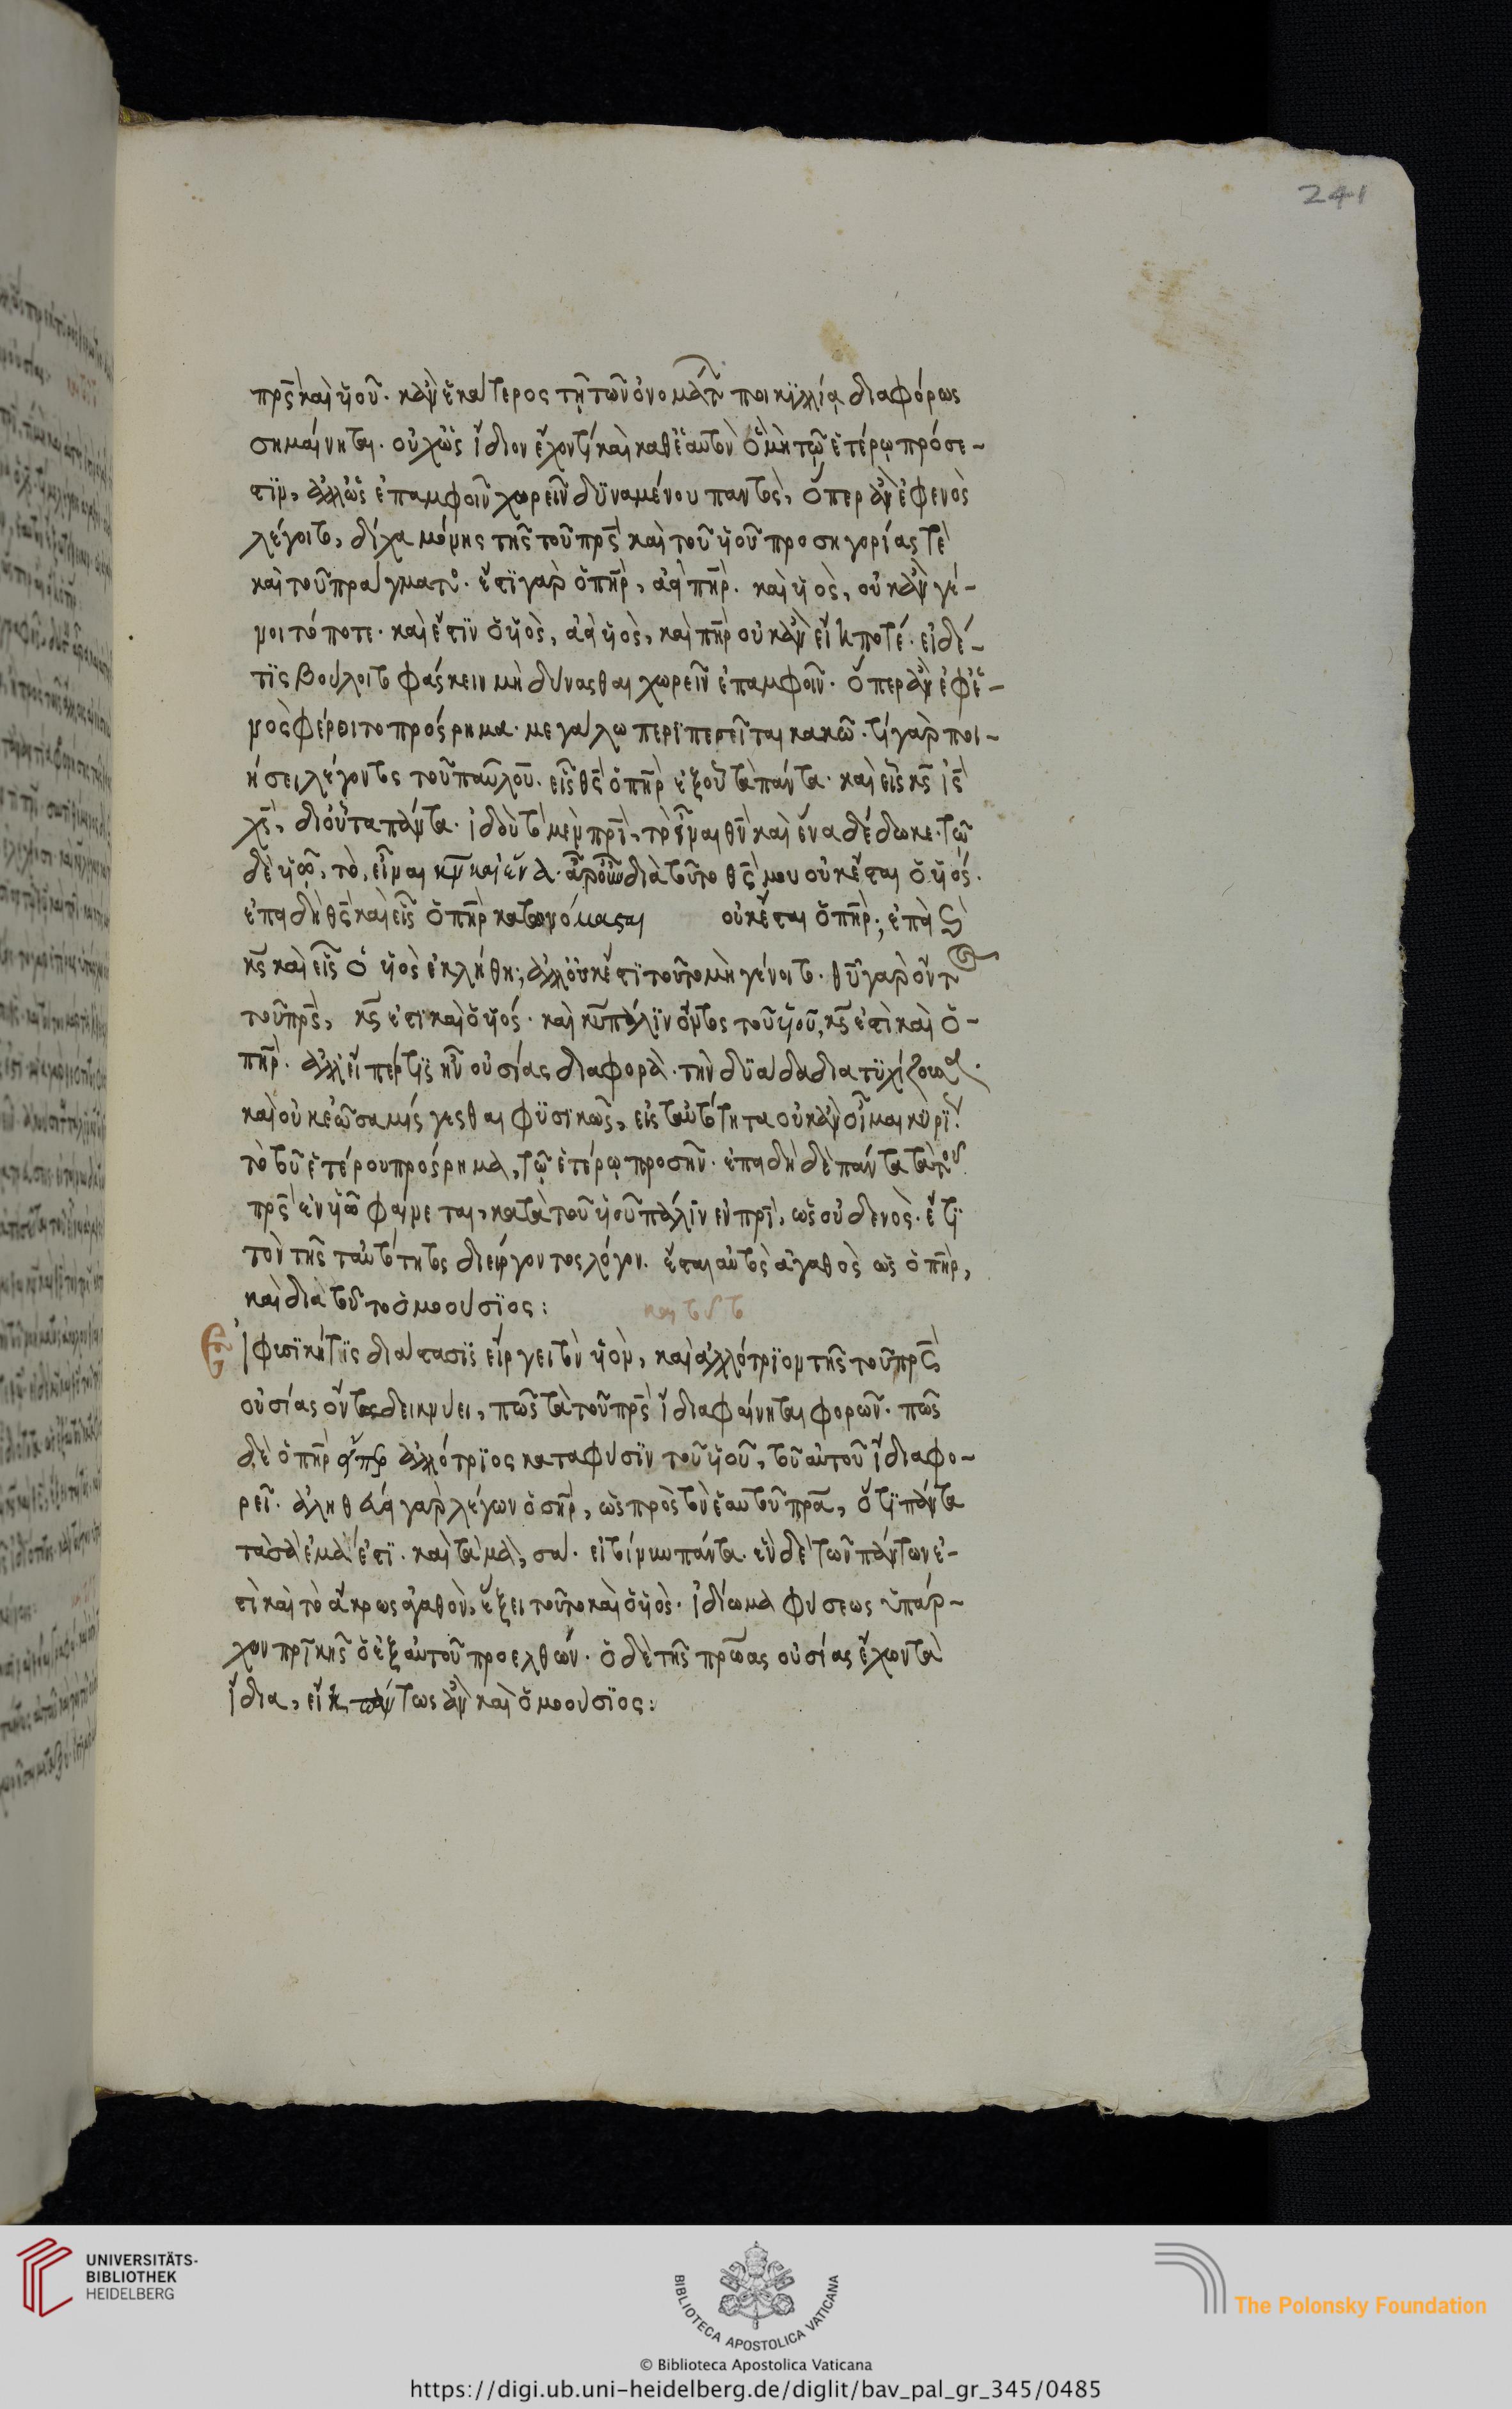 241
πρς καὶ ϋοῦ· κἂν ἑκάτερος τῇ τῶν ὀνομάτ ποικϊλίᾳ διαφόρως
σημαίνηται· οὐχ ὡς ἴδιον ἔχοντι καὶ καθ ἑαυτὸν ὃ μὴ τῷ ἑτέρῳ πρόσε-
στϊν, ἀλλ ὡς ἐπ αμφοῖν χωρεῖν δϋναμένου παντὸς, ὅπερ ἂν ἐφ ενὸς
λέγοιτο, δίχα μόνης τῆς τοῦ πρς καὶ τοῦ ϋοῦ προσηγορίας τὲ
καὶ τοῦ πράγματο· ἔστϊ γὰρ ὁ πηρ, ἀεὶ πηρ· καὶ ϋὸς, οὐκ ἂν γέ-
νοιτό ποτε· καὶ ἔστϊν ὁ ϋὸς, ἀεὶ ϋὸς, καὶ πηρ οὐκ ἂν εἴη ποτέ· εἰ δέ
τϊς βούλοιτο φάσκειν μὴ δύνασθαι χωρεῖν ἐπ αμφοῖν· ὅπερ ἂν ἐφ ἑ-
νὸς φέροιτο πρόσρημα· μεγάλω περϊπεσεῖται κακῶ· τί γὰρ ποι-
ήσει λέγοντος τοῦ παύλου· εἷς θς ὁ πηρ ἐξ οὗ τὰ πάντα· καὶ εἷς κς ἰς
χς, δι οὗ τα πάντα· ἰδοὺ τῶ μὲν πρϊ, τὸ εἶναι θν καὶ ἕνα δέδωκε· τῶ
δὲ ϋῶ, τὸ, εἶναι κν καὶ ἕνα· ἆρ οὖν διὰ τοῦτο θς μου οὐκ ἔσται ὁ ϋός·
ἐπειδὴ θς καὶ εἷς ὁ πηρ κατωνόμασται οὐκ ἔσται ὁ πηρ; ἐπεὶ
κς καὶ εἷς ὁ ϋὸς ἐκλήθη; ἀλλ οὐκ ἔστϊ τοῦτο μὴ γένοιτο· θυ γὰρ ὄντ
τοῦ πρς, κς ἐστι καὶ ὁ ϋός· καὶ κυ πάλϊν ὄντος τοῦ ϋοῦ, κς ἐστὶ καὶ ὁ-
πηρ· ἀλλ εἴπέρ τϊς ἦν οὐσίας διαφορὰ· τὴν δϋάδα διατϋχίζουσα·
καὶ οὐκ ἐῶσα μίσγεσθαι φϋσϊκῶς, εἰς ταὐτότητα οὐκ ἂν οἶμαι κϋρϊ
τὸ τοῦ ἑτέρου πρόσρημα, τῷ ἑτέρῳ προσῆν· ἐπειδὴ δὲ πάντα τὰ τοῦ
πρς ἐν ϋῶ φαίνεται, κατὰ τοῦ ϋοῦ πάλϊν ἐν πρϊ, ὡς οὐδενὸς· ἔτϊ
τὸν τῆς ταὐτότητος διείργοντος λόγον. ἔσται αὐτὸς ἀγαθὸς ὡς ὁ πηρ,
καὶ διὰ τοῦτο ὁμοουσϊος:
καὶ τοῦτο
Εἰ φυσϊκή τϊς διάστασϊς εἴργει τὸν ϋὸν, καὶ ἀλλότρϊον τῆς τοῦ πρς
οὐσίας ὄντα δεικνύει, πῶς τὰ τοῦ πρς ἴδια φαίνηται φορῶν· πῶς
δὲ ὁ πηρ εἴπερ ἀλλότρϊος κατα φύσϊν τοῦ ϋοῦ, τοῦ αὐτοῦ ἴδια φο-
ρεῖ· ἀληθεύει γὰρ λέγων ὁ σηρ, ὡς πρὸς τὸν ἑαυτοῦ πρα, ὅτϊ πάντα
τὰ σὰ ἐμά ἐστϊ· καὶ τὰ μὰ, σά· εἰ τοίνυν πάντα· ἓν δὲ τῶν πάντων ἐ-
στὶ καὶ τὸ ἄκρως ἀγαθὸν, ἕξει τοῦτο καὶ ὁ ϋὸς· ἰδίωμα φύσεως ὑπάρ-
χον πρϊκῆς ὁ ἐξ αὐτοῦ προελθών· ὁ δὲ τῆς πρώας οὐσίας ἔχων τὰ
ἴδια, εἴη πάντως ἂν καὶ ὁμοουσϊος:
UNIVERSITÄTS-
BIBLIOTHEK
HEIDELBERG
BIBLIOTECA APOSTOLICA VATICANA
The Polonsky Foundation
© Biblioteca Apostolica Vaticana
https://digi.ub.uni-heidelberg.de/diglit/bav_pal_gr_345/0485